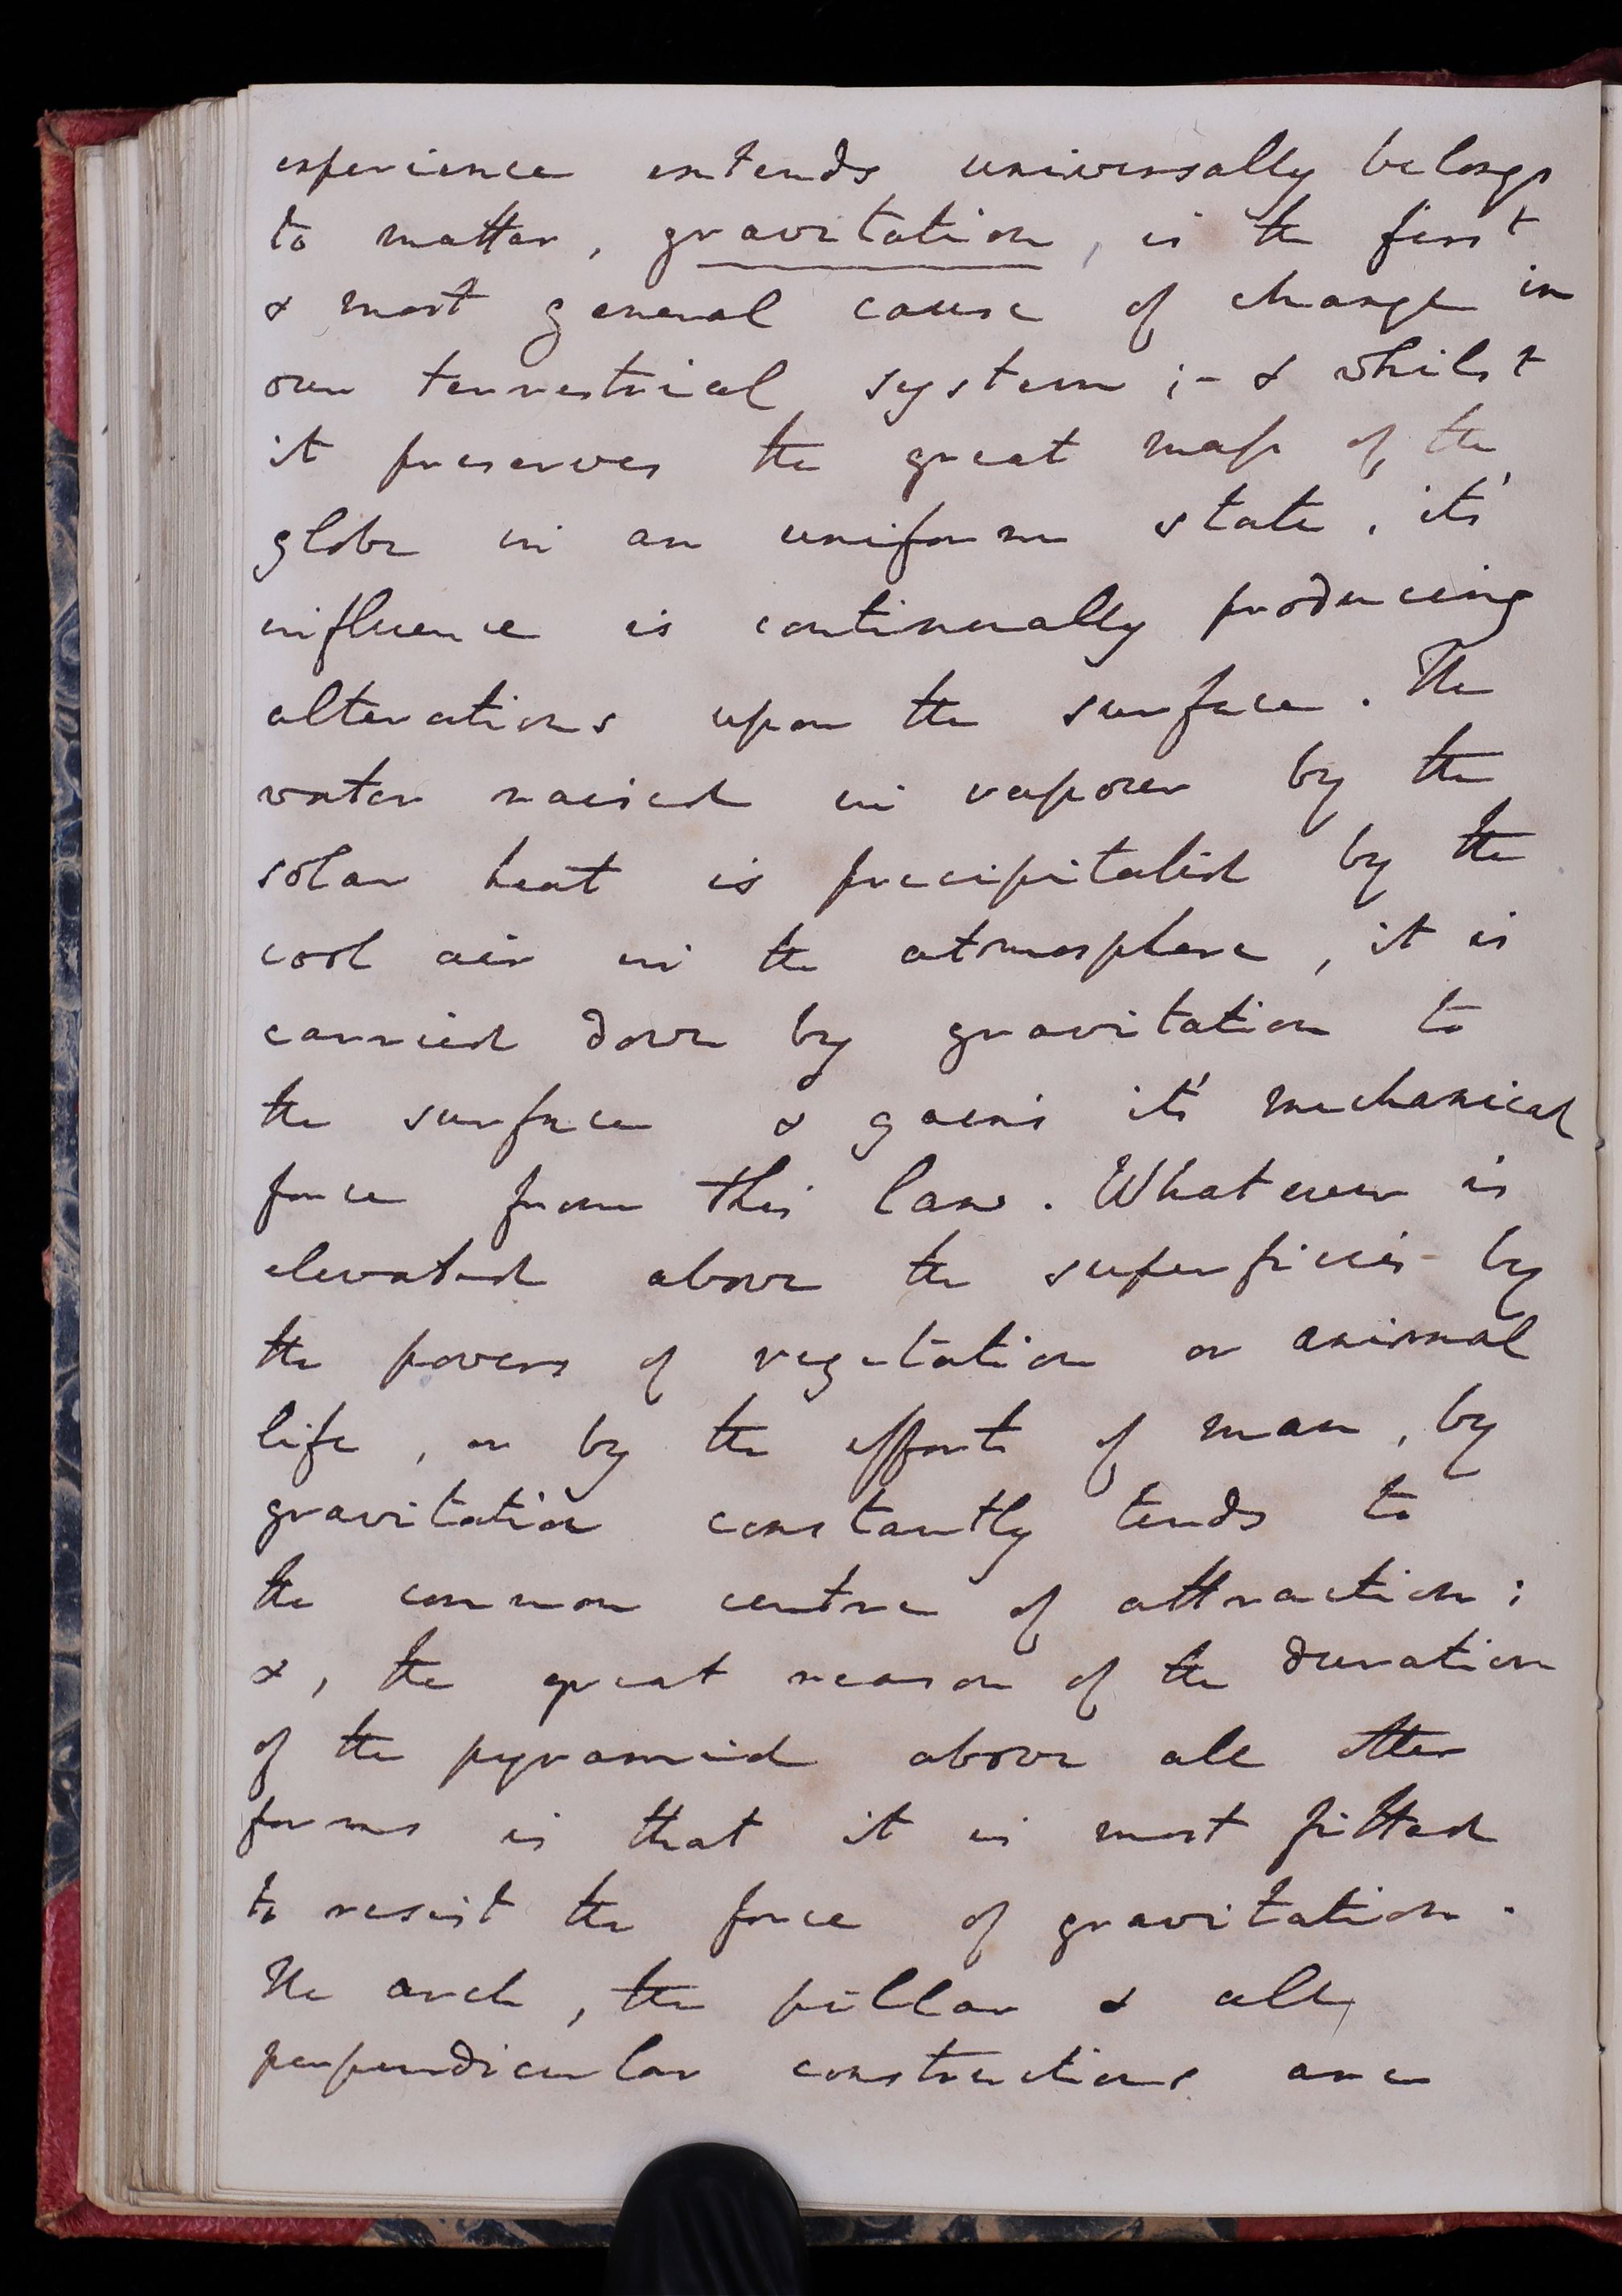 experience extends universally belongs
to matter, gravitation, is the first
& most general cause of change in
our terrestrial system ;- & whilst
it preserves the great mass of the
globe in an uniform state, it's
influence is continually producing
alterations upon the surface. The
water raised in vapour by the
solar heat is precipitated by the
cool air in the atmosphere, it is
carried down by gravitation to
the surface & gains it's mechanical
force from this law. Whatever is
elevated above the superficies by
the powers of vegetation or animal
life, or by the efforts of man, by
gravitation constantly tends to
the common centre of attraction;
&, the great reason of the duration
of the pyramid above all other
forms is that it is most fitted
to resist the force of gravitation.
The arch, the pillar & all
perpendicular constructions are